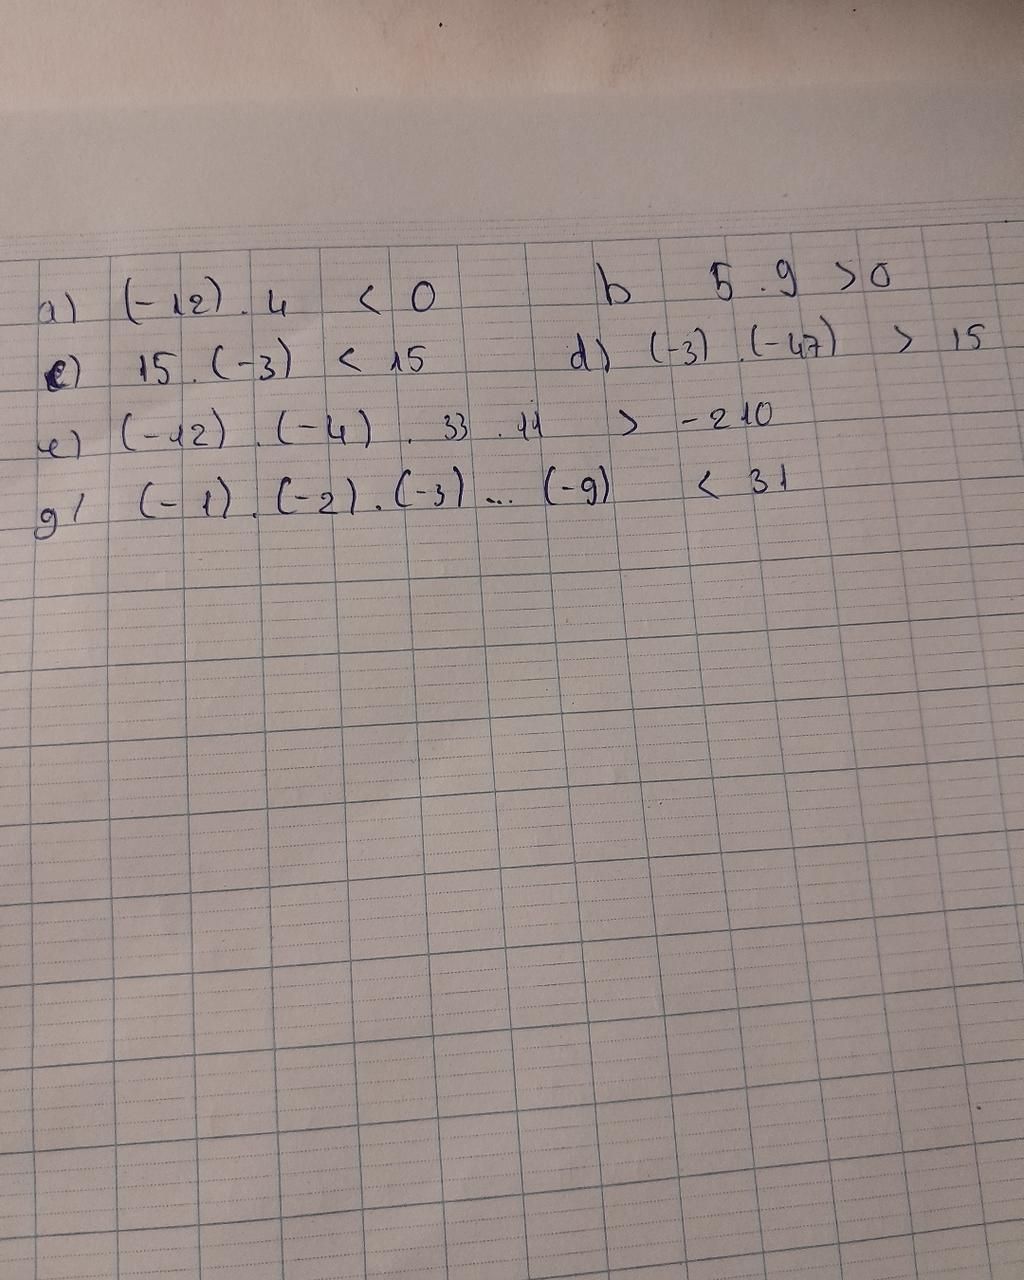 a) (-12) . 4 < 0 b 5 . 9 > 0
c) 15 . (-3) < 15 d) (-3) . (-47) > 15
e) (-12) . (-4) . 33 . 11 > -210
g) (-1) . (-2) . (-3) ... (-9) < 31